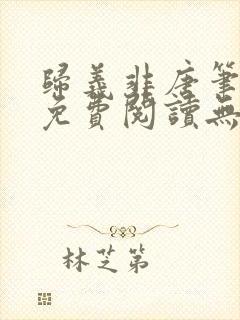 歸義非唐筆
免費閱讀無
林芝第